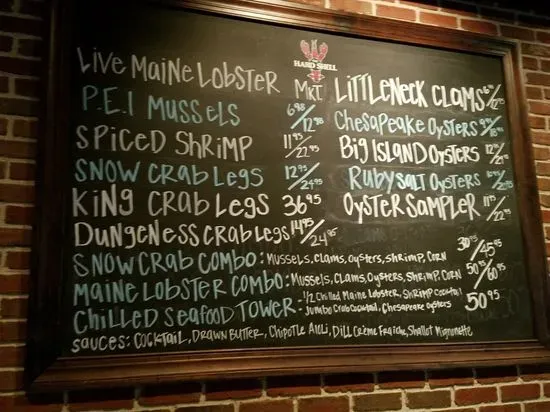 THE
HARD SHELL
LIVE MAINE LOBSTER MKT.
P.E.I MUSSELS 6.98/12.98
SPICED SHRIMP 11.95/22.95
SNOW CRAB LEGS 12.95/24.95
KING CRAB LEGS 36.95
DUNGENESS CRAB LEGS 14.95/24.95
LITTLENECK CLAMS
CHESAPEAKE OYSTERS
BIG ISLAND OYSTERS
RUBY SALT OYSTERS
OYSTER SAMPLER
SNOW CRAB COMBO: MUSSELS, CLAMS, OYSTERS, SHRIMP, CORN 30.95/45.95
MAINE LOBSTER COMBO: MUSSELS, CLAMS, OYSTERS, SHRIMP, CORN 50.95/60.95
CHILLED SEAFOOD TOWER- 1/2 CHILLED MAINE LOBSTER, SHRIMP COCKTAIL 50.95
JUMBO CRAB COCKTAIL, CHESAPEAKE OYSTERS
SAUCES: COCKTAIL, DRAWN BUTTER, CHIPOTLE AIOLI, DILL CRÈME FRAICHE, SHALLOT MIGNONETTE